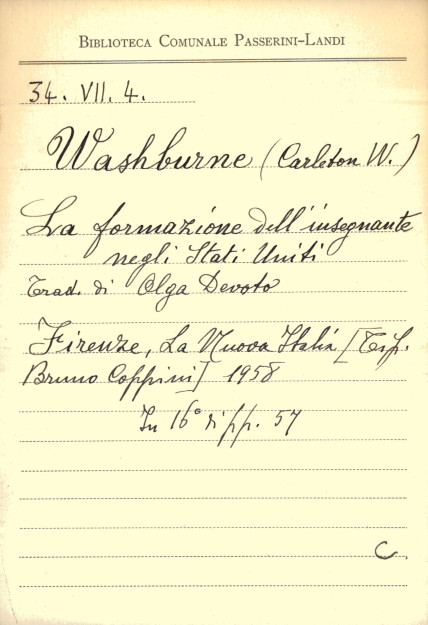 BIBLIOTECA COMUNALE PASSERINI-LANDI
34. VII. 4.
Washburne (Carleton W.)
La formazione dell'insegnante
negli Stati Uniti
Trad. di Olga Devoto
Firenze, La Nuova Italia [Tip.
Bruno Coppini] 1958
In 16° di pp. 57
C.